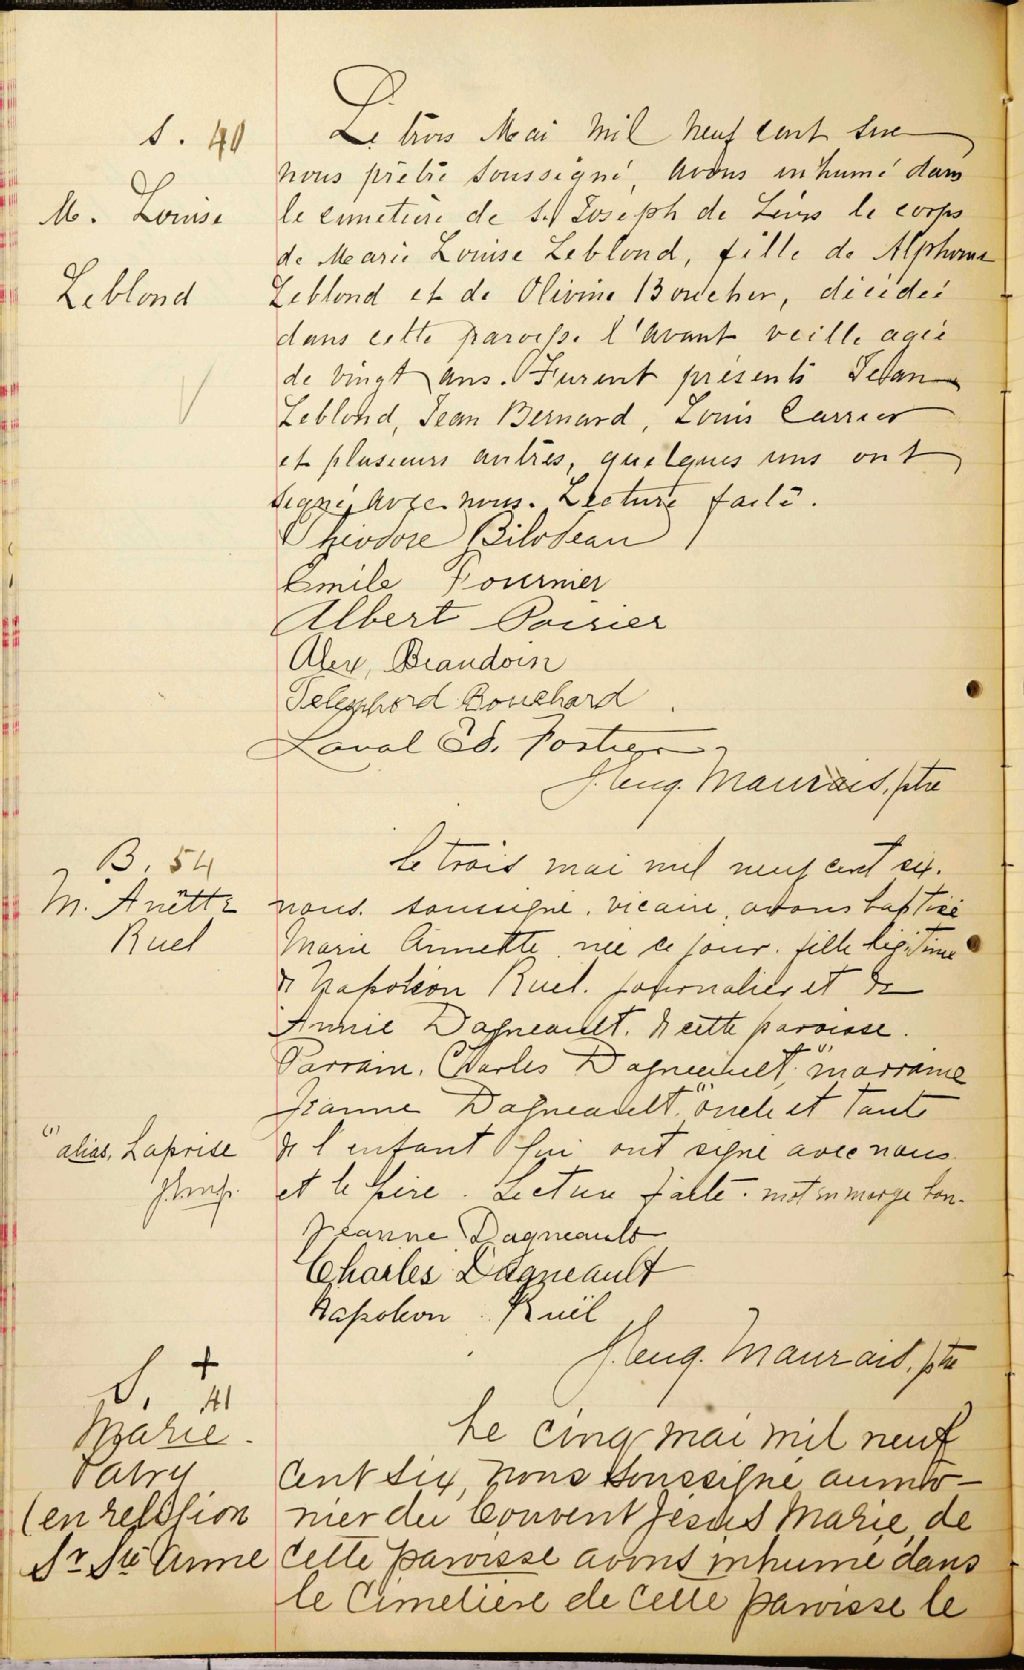 S. 40
M. Louise
Leblond
Le trois Mai mil neuf cent six
nous prêtre soussigné, avons inhumé dans
le cimetière de S. Joseph de Lévis le corps
de Marie Louise Leblond, fille de Alphonse
Leblond et de Olivine Boucher, décédée
dans cette paroisse l'avant veille agée
de vingt ans. Furent présents Jean
Leblond, Jean Bernard, Louis Carrier
et plusieurs autres, quelques uns ont
signé avec nous. Lecture faite.
Théodore Bilodeau
Emile Fournier
Albert Poirier
Alex, Beaudoin
Telesphord Bouchard
Laval Ed. Fortier
J. Eug. Maurais, ptre
B. 54
M. Anètte
Ruel
le trois mai mil neuf cent six.
nous soussigné, vicaire, avons baptisé
Marie Annette née ce jour, fille légitime
de Napoléon Ruel, journalier et de
Annie Dagneault, de cette paroisse.
Parrain, Charles Dagneault, (1) marraine
Jeanne Dagneault, (1) oncle et tante
de l'enfant qui ont signé avec nous
et le père. Lecture faite. mot en marge bon.
(1) alias, Laprise
Jeanne Dagneault
Charles Dagneault
Napoléon Ruël
J. Eug. Maurais, ptre
S. +
41
Marie
Patry
(en religion
Sr Ste Anne
Le cinq mai mil neuf
cent six, nous soussigné aumô-
nier du Couvent Jésus Marie, de
cette paroisse avons inhumé dans
le Cimetière de cette paroisse le